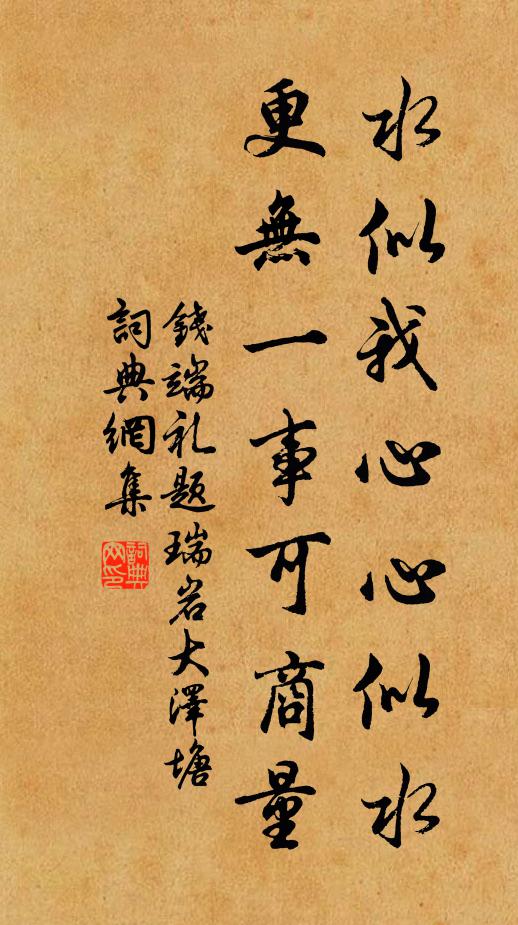 水似我心心似水
更無一事可商量
錢端礼题瑞岩大澤塘
詞典網集
詞典
网印